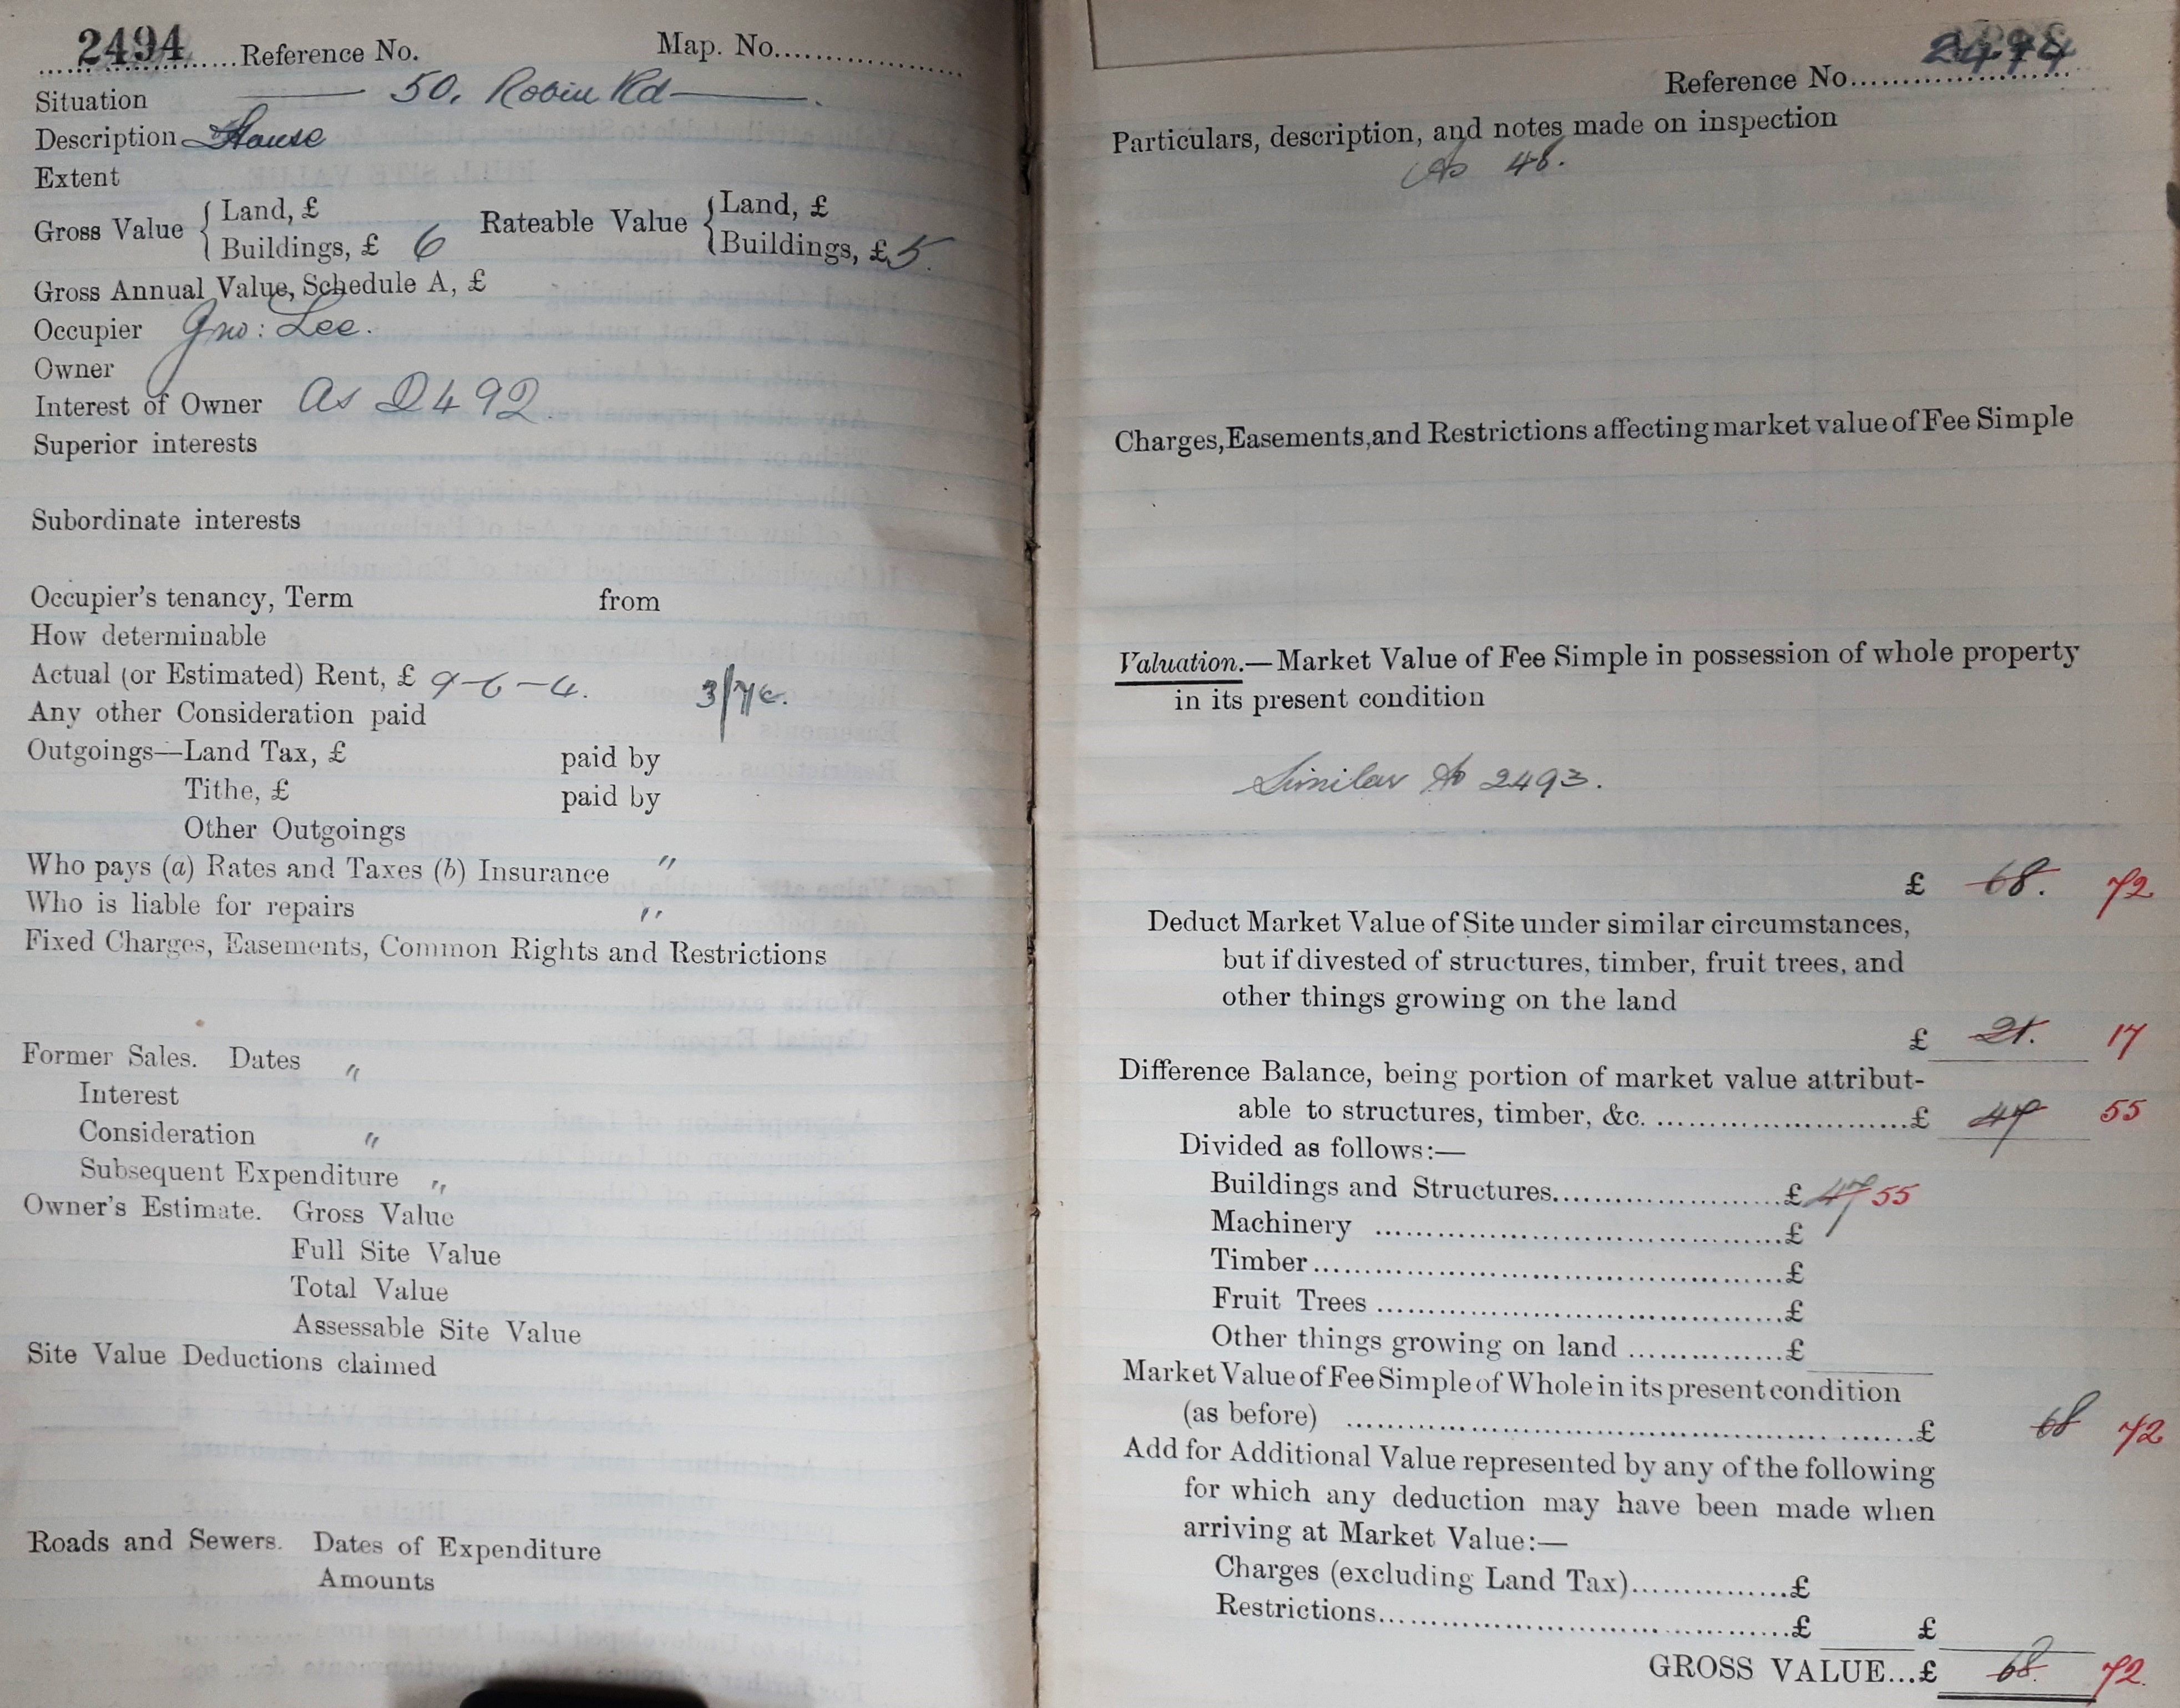 2494 Reference No. Map. No.
Situation 50, Robin Rd
Description House
Extent
Gross Value { Land, £ Rateable Value { Land, £
Buildings, £ 6 Buildings, £ 5.
Gross Annual Value, Schedule A, £
Occupier Jno: Lee.
Owner
Interest of Owner As 2492
Superior interests
Subordinate interests
Occupier's tenancy, Term from
How determinable
Actual (or Estimated) Rent, £ 9-6-4.
Any other Consideration paid
Outgoings—Land Tax, £ paid by
Tithe, £ paid by
Other Outgoings
Who pays (a) Rates and Taxes (b) Insurance "
Who is liable for repairs "
Fixed Charges, Easements, Common Rights and Restrictions
Former Sales. Dates "
Interest
Consideration "
Subsequent Expenditure "
Owner's Estimate. Gross Value
Full Site Value
Total Value
Assessable Site Value
Site Value Deductions claimed
Roads and Sewers. Dates of Expenditure
Amounts
Reference No. 2494
Particulars, description, and notes made on inspection
As 48.
Charges, Easements, and Restrictions affecting market value of Fee Simple
Valuation.—Market Value of Fee Simple in possession of whole property
in its present condition
Similar to 2493.
£ 68. 72
Deduct Market Value of Site under similar circumstances,
but if divested of structures, timber, fruit trees, and
other things growing on the land
£ 21. 17
Difference Balance, being portion of market value attribut-
able to structures, timber, &c. £ 47 55
Divided as follows:—
Buildings and Structures £ 47 55
Machinery £
Timber £
Fruit Trees £
Other things growing on land £
Market Value of Fee Simple of Whole in its present condition
(as before) £ 68 72
Add for Additional Value represented by any of the following
for which any deduction may have been made when
arriving at Market Value:—
Charges (excluding Land Tax) £
Restrictions £ £
GROSS VALUE...£ 68. 72.